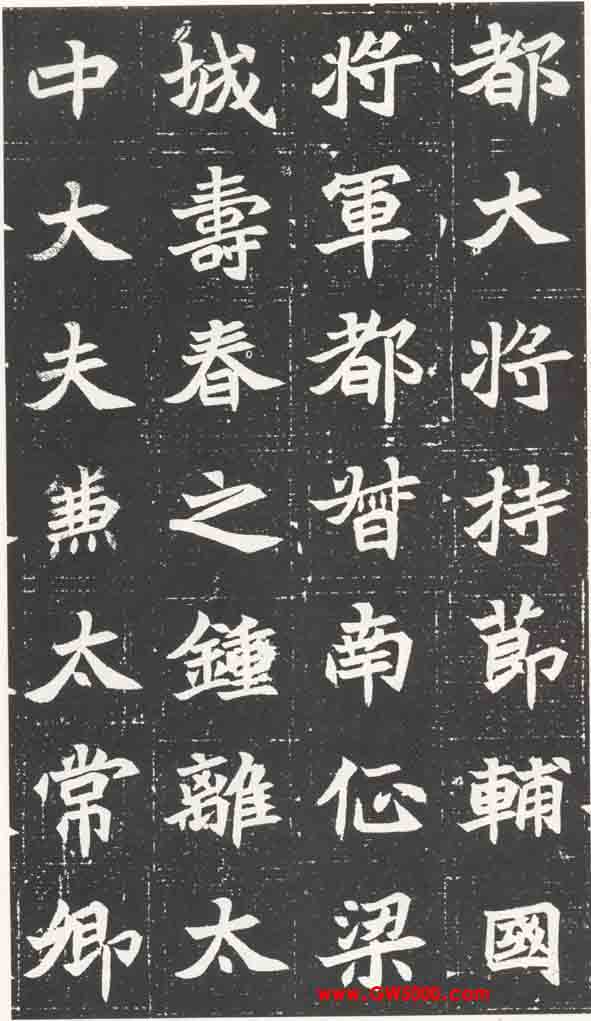 都大将持節輔國
将軍都督南征梁
城壽春之鍾離太
中大夫兼太常卿
www.GW5000.com